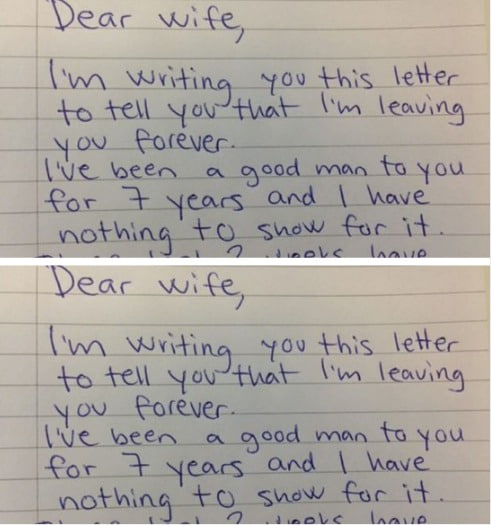 Dear wife,
I'm writing you this letter
to tell you that I'm leaving
you forever.
I've been a good man to you
for 7 years and I have
nothing to show for it.
2 weeks have
Dear wife,
I'm writing you this letter
to tell you that I'm leaving
you forever.
I've been a good man to you
for 7 years and I have
nothing to show for it.
2 weeks have